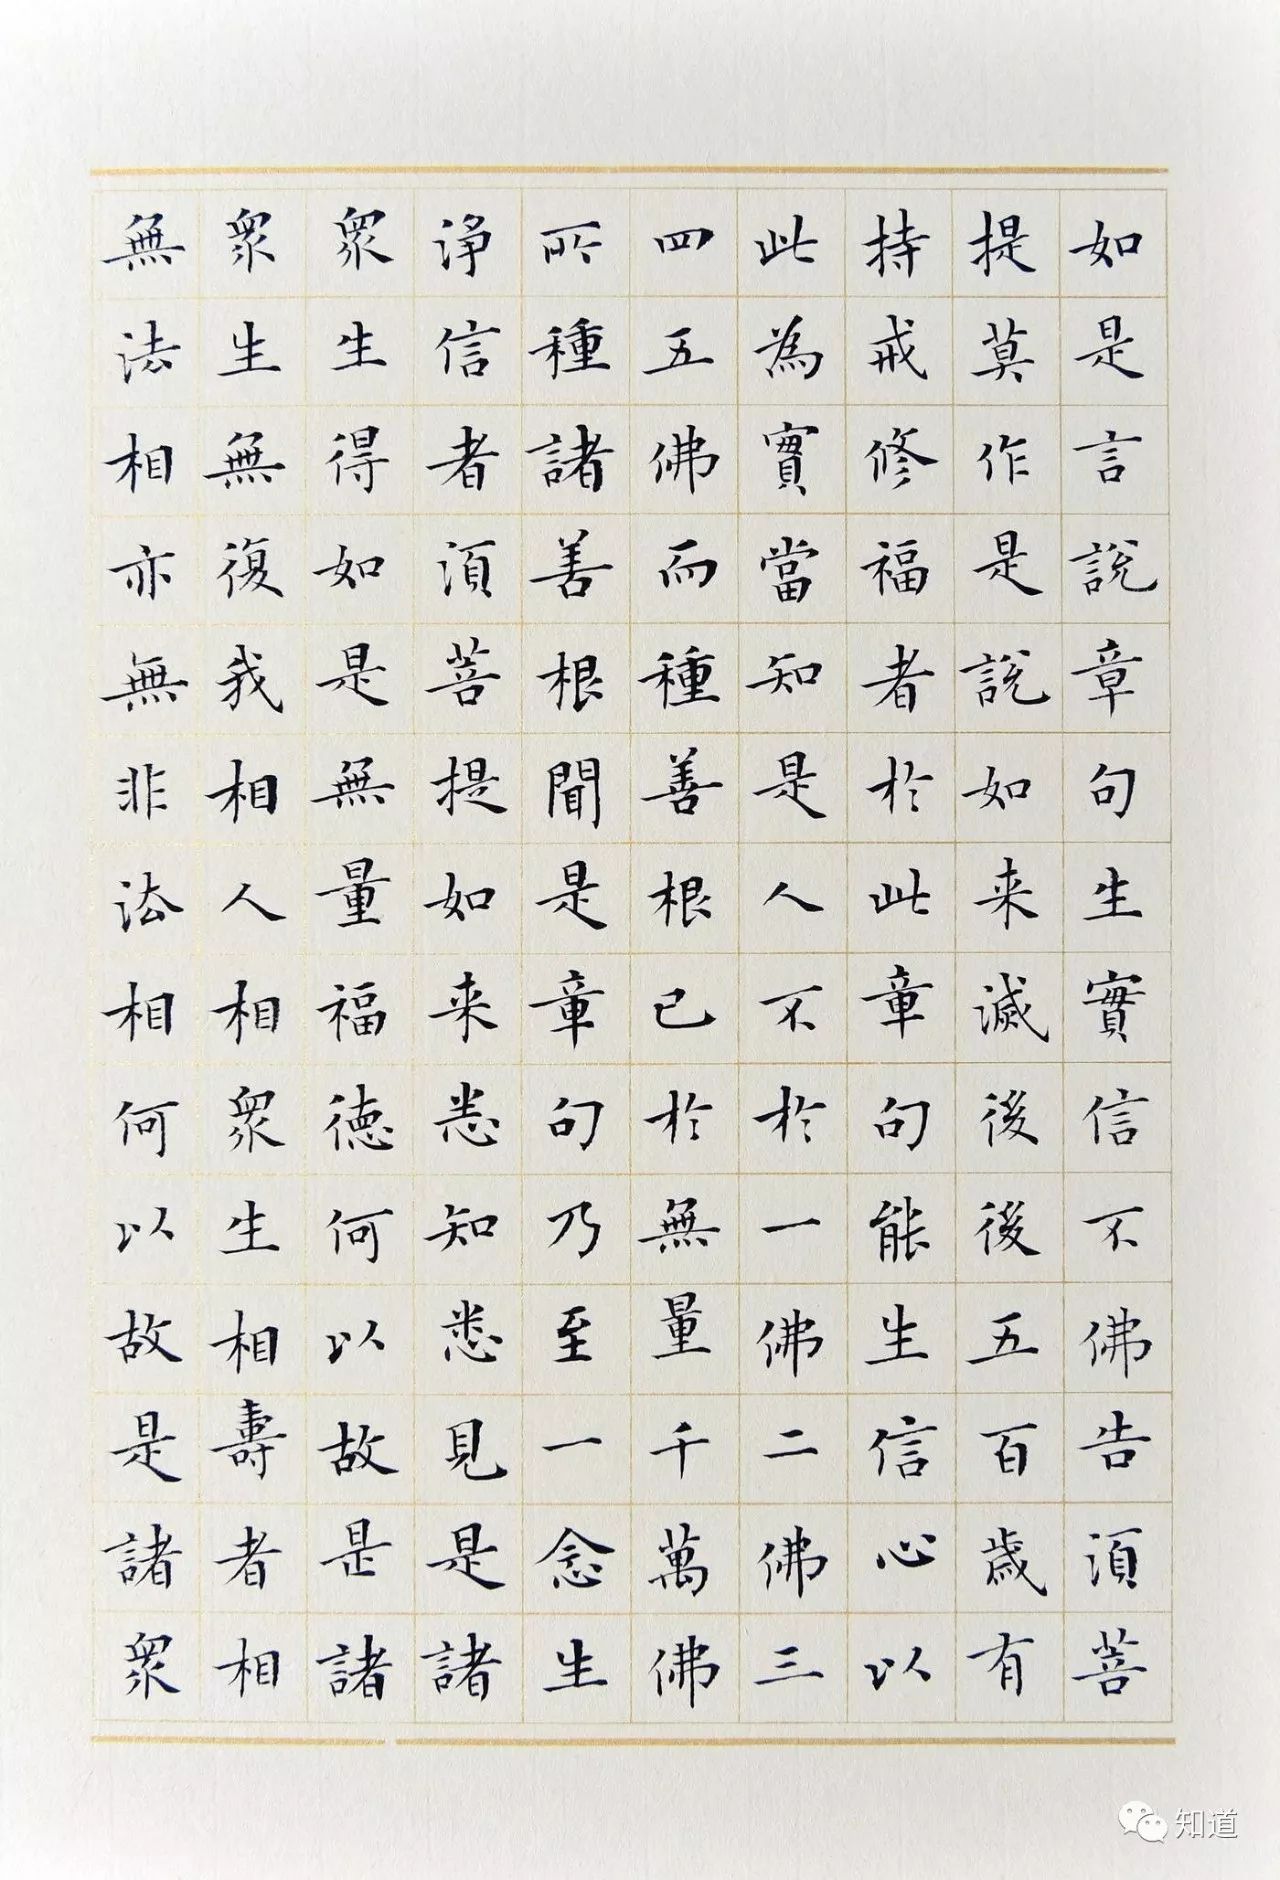 如是言說章句生實信不佛告須菩
提莫作是說如来滅後後五百歲有
持戒修福者於此章句能生信心以
此為實當知是人不於一佛二佛三
四五佛而種善根已於無量千萬佛
所種諸善根聞是章句乃至一念生
淨信者須菩提如来悉知悉見是諸
眾生得如是無量福德何以故是諸
眾生無復我相人相眾生相壽者相
無法相亦無非法相何以故是諸眾
知道